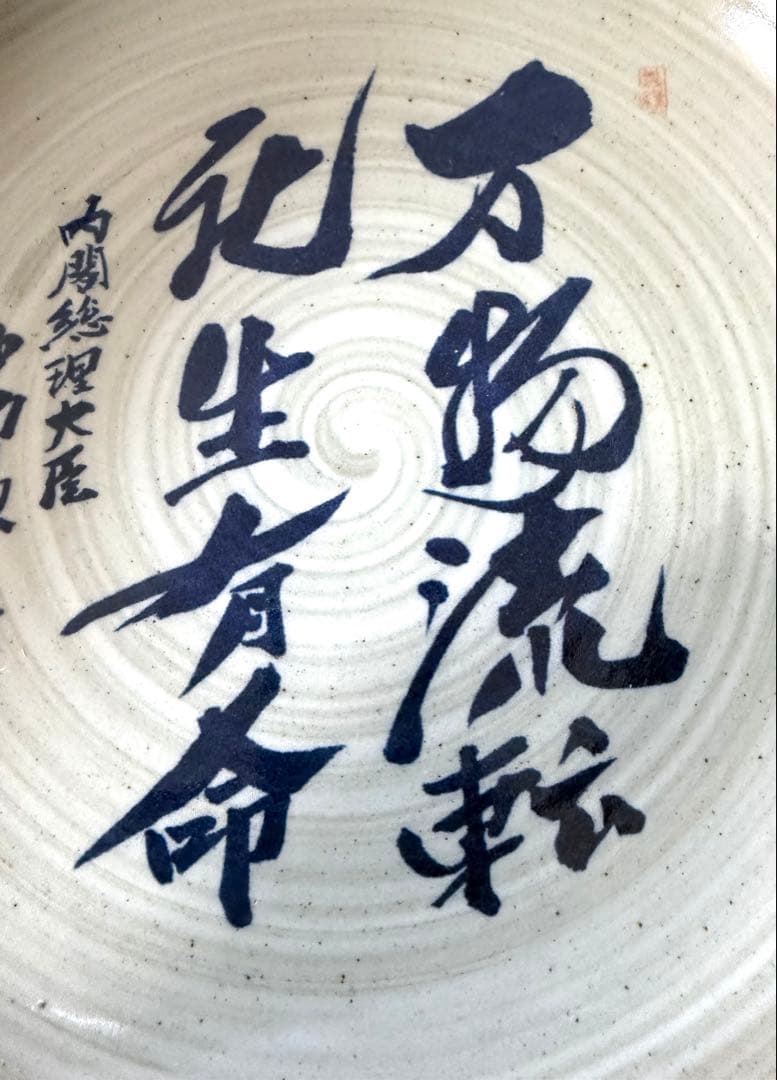 万物流転
化生有命
内閣総理大臣